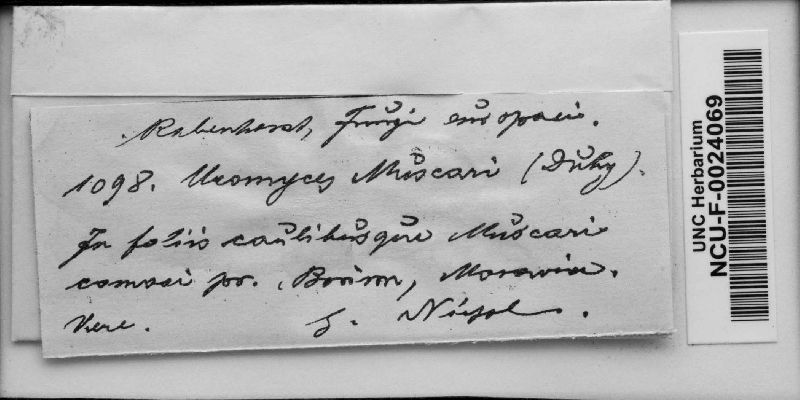 Rabenhorst, Fungi europaei.
1098. Uromyces Muscari (Duby).
In foliis caulibusque Muscari
comosi pr. Brünn, Moravia.
Vere. G. Niessl.
UNC Herbarium
NCU-F-0024069